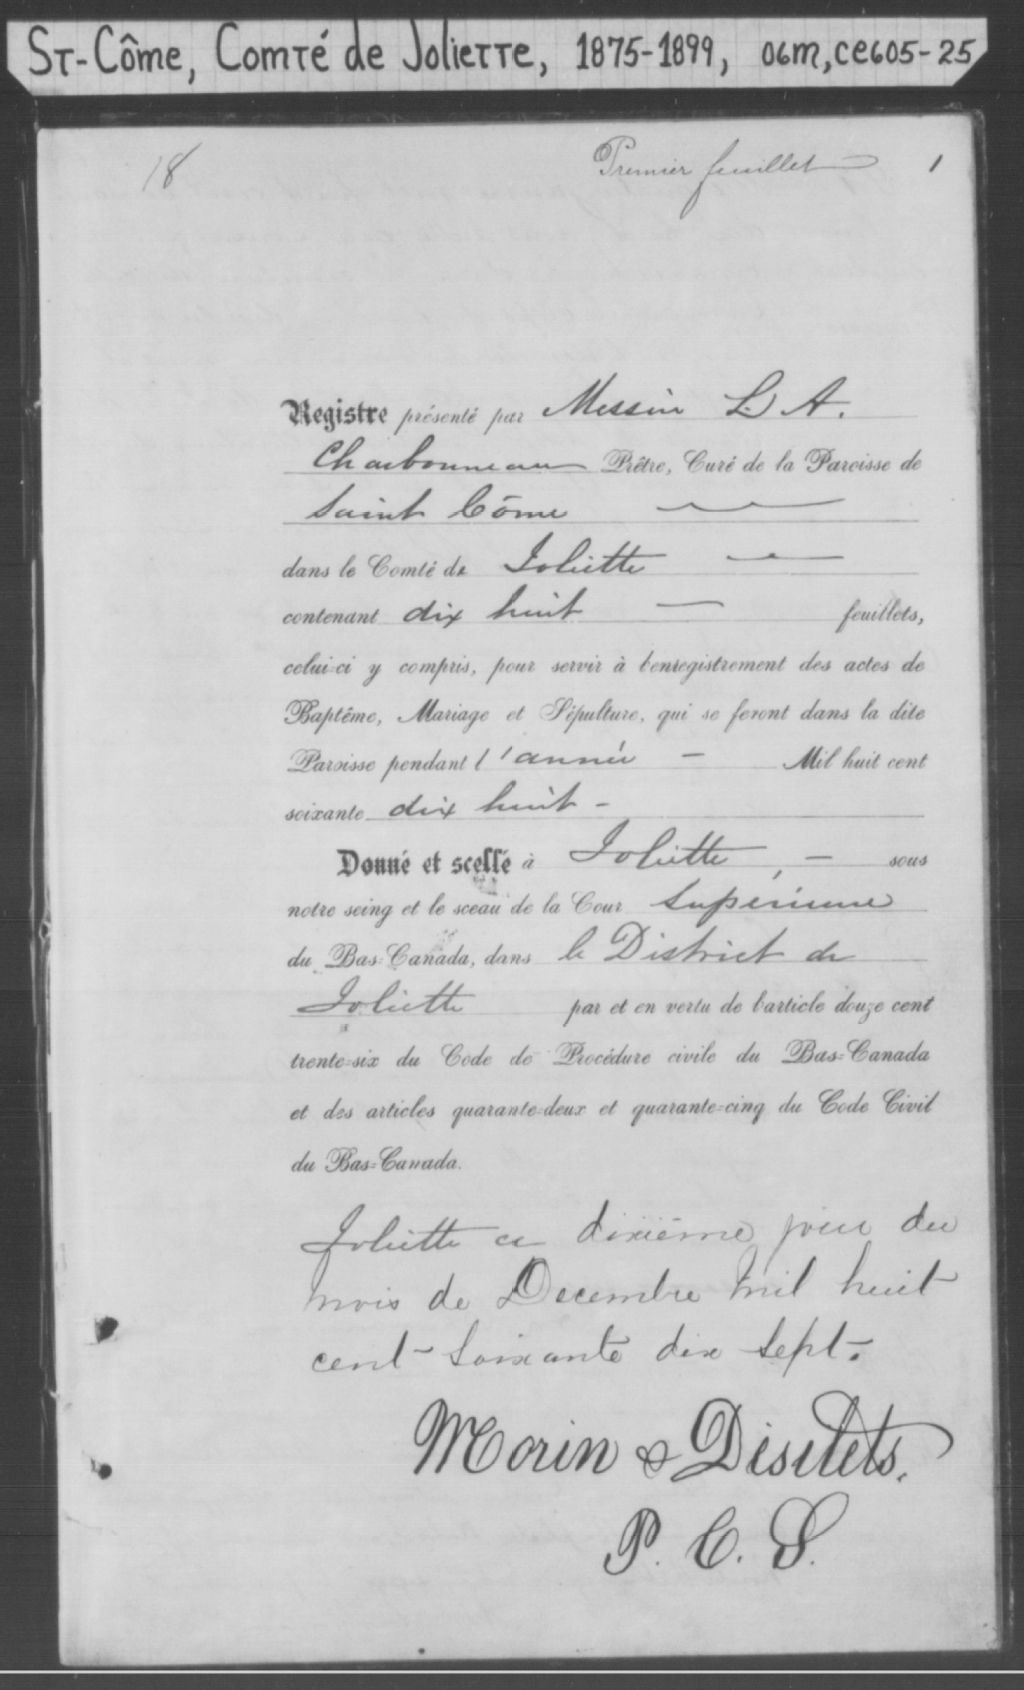 St-Côme, Comté de Joliette, 1875-1899, 06m,ce605-25
18
Premier feuillet 1
Registre présenté par Messire L. A.
Charbonneau Prêtre, Curé de la Paroisse de
Saint Côme
dans le Comté de Joliette
contenant dix huit feuillets,
celui-ci y compris, pour servir à l'enregistrement des actes de
Baptême, Mariage et Sépulture, qui se feront dans la dite
Paroisse pendant l'année - Mil huit cent
soixante dix huit -
Donné et scellé à Joliette, - sous
notre seing et le sceau de la Cour Supérieure
du Bas-Canada, dans le District de
Joliette par et en vertu de l'article douze cent
trente-six du Code de Procédure civile du Bas-Canada
et des articles quarante-deux et quarante-cinq du Code Civil
du Bas-Canada.
Joliette ce dixième jour du
mois de Decembre mil huit
cent-soixante dix sept.
Morin & Désilets.
P. C. S.